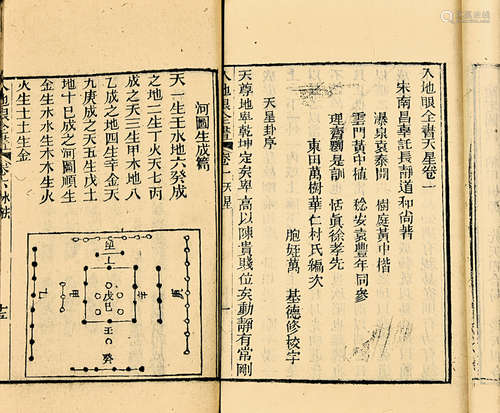 入地眼全書天星卷一
宋南昌辜託長靜道和尚著
瀑泉袁泰開 樹庭黃中楷
雲門黃中植 稔安袁豐年同參
理齋劉是訓 恬真徐孝先
東田萬樹華仁村氏編次
胞姪萬 基德修校字
天星卦序
天尊地卑乾坤定矣卑高以陳貴賤位矣動靜有常剛
入地眼全書 卷一 天星 一
河圖生成篇
天一生壬水地六癸成
之地二生丁火天七丙
成之天三生甲木地八
乙成之地四生辛金天
九庚成之天五生戊土
地十己成之河圖順生
金生水水生木木生火
火生土土生金
丁
庚 辛 戊己 甲 乙
壬
癸
入地眼全書 卷六 水法